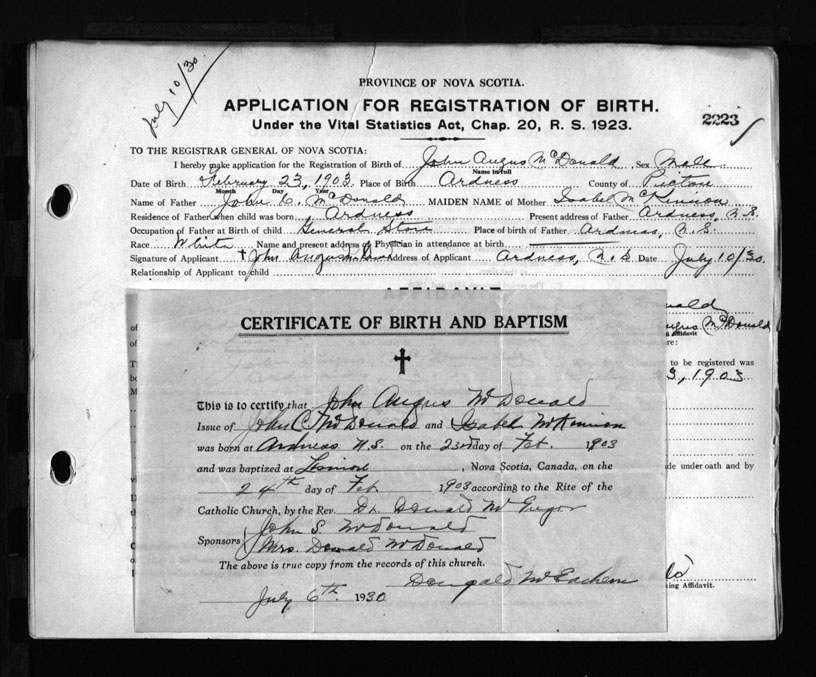 July 10/30.
PROVINCE OF NOVA SCOTIA.
APPLICATION FOR REGISTRATION OF BIRTH.
2223
Under the Vital Statistics Act, Chap. 20, R. S. 1923.
TO THE REGISTRAR GENERAL OF NOVA SCOTIA:
I hereby make application for the Registration of Birth of John Angus McDonald Sex Male
Name in full
Date of Birth February 23, 1903 Place of Birth Ardness County of Pictou
Month Day Year
Name of Father John C. McDonald MAIDEN NAME of Mother Isabel McKinnon
Residence of Father when child was born Ardness Present address of Father Ardness, N.S.
Occupation of Father at Birth of child General Store Place of birth of Father Ardness, N.S.
Race White Name and present address of Physician in attendance at birth
Signature of Applicant John Angus Address of Applicant Ardness, N.S. Date July 10/30.
Relationship of Applicant to child
AFFIDAVIT
Angus McDonald
Affidavit
to be registered was
3, 1903
de under oath and by
ing Affidavit.
CERTIFICATE OF BIRTH AND BAPTISM
This is to certify that John Angus McDonald
Issue of John C. McDonald and Isabel McKinnon
was born at Ardness N.S. on the 23rd day of Feb. 1903
and was baptized at Lismore, Nova Scotia, Canada, on the
24th day of Feb 1903 according to the Rite of the
Catholic Church, by the Rev. Dr. Donald McGregor
Sponsors John S. McDonald
Mrs. Donald McDonald
The above is true copy from the records of this church.
Dougald McEachern
July 6th. 1930